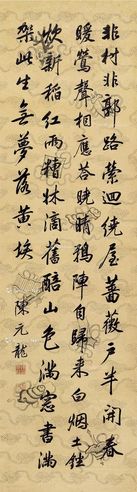 非村非郭路縈迴繞屋薔薇戶半開春
暖鶯聲相應荅晚晴鴉陣自歸來白烟土銼
炊新稻紅雨糟牀滴舊醅山色滿窓書滿
架此生無夢落黃埃
陳元龍